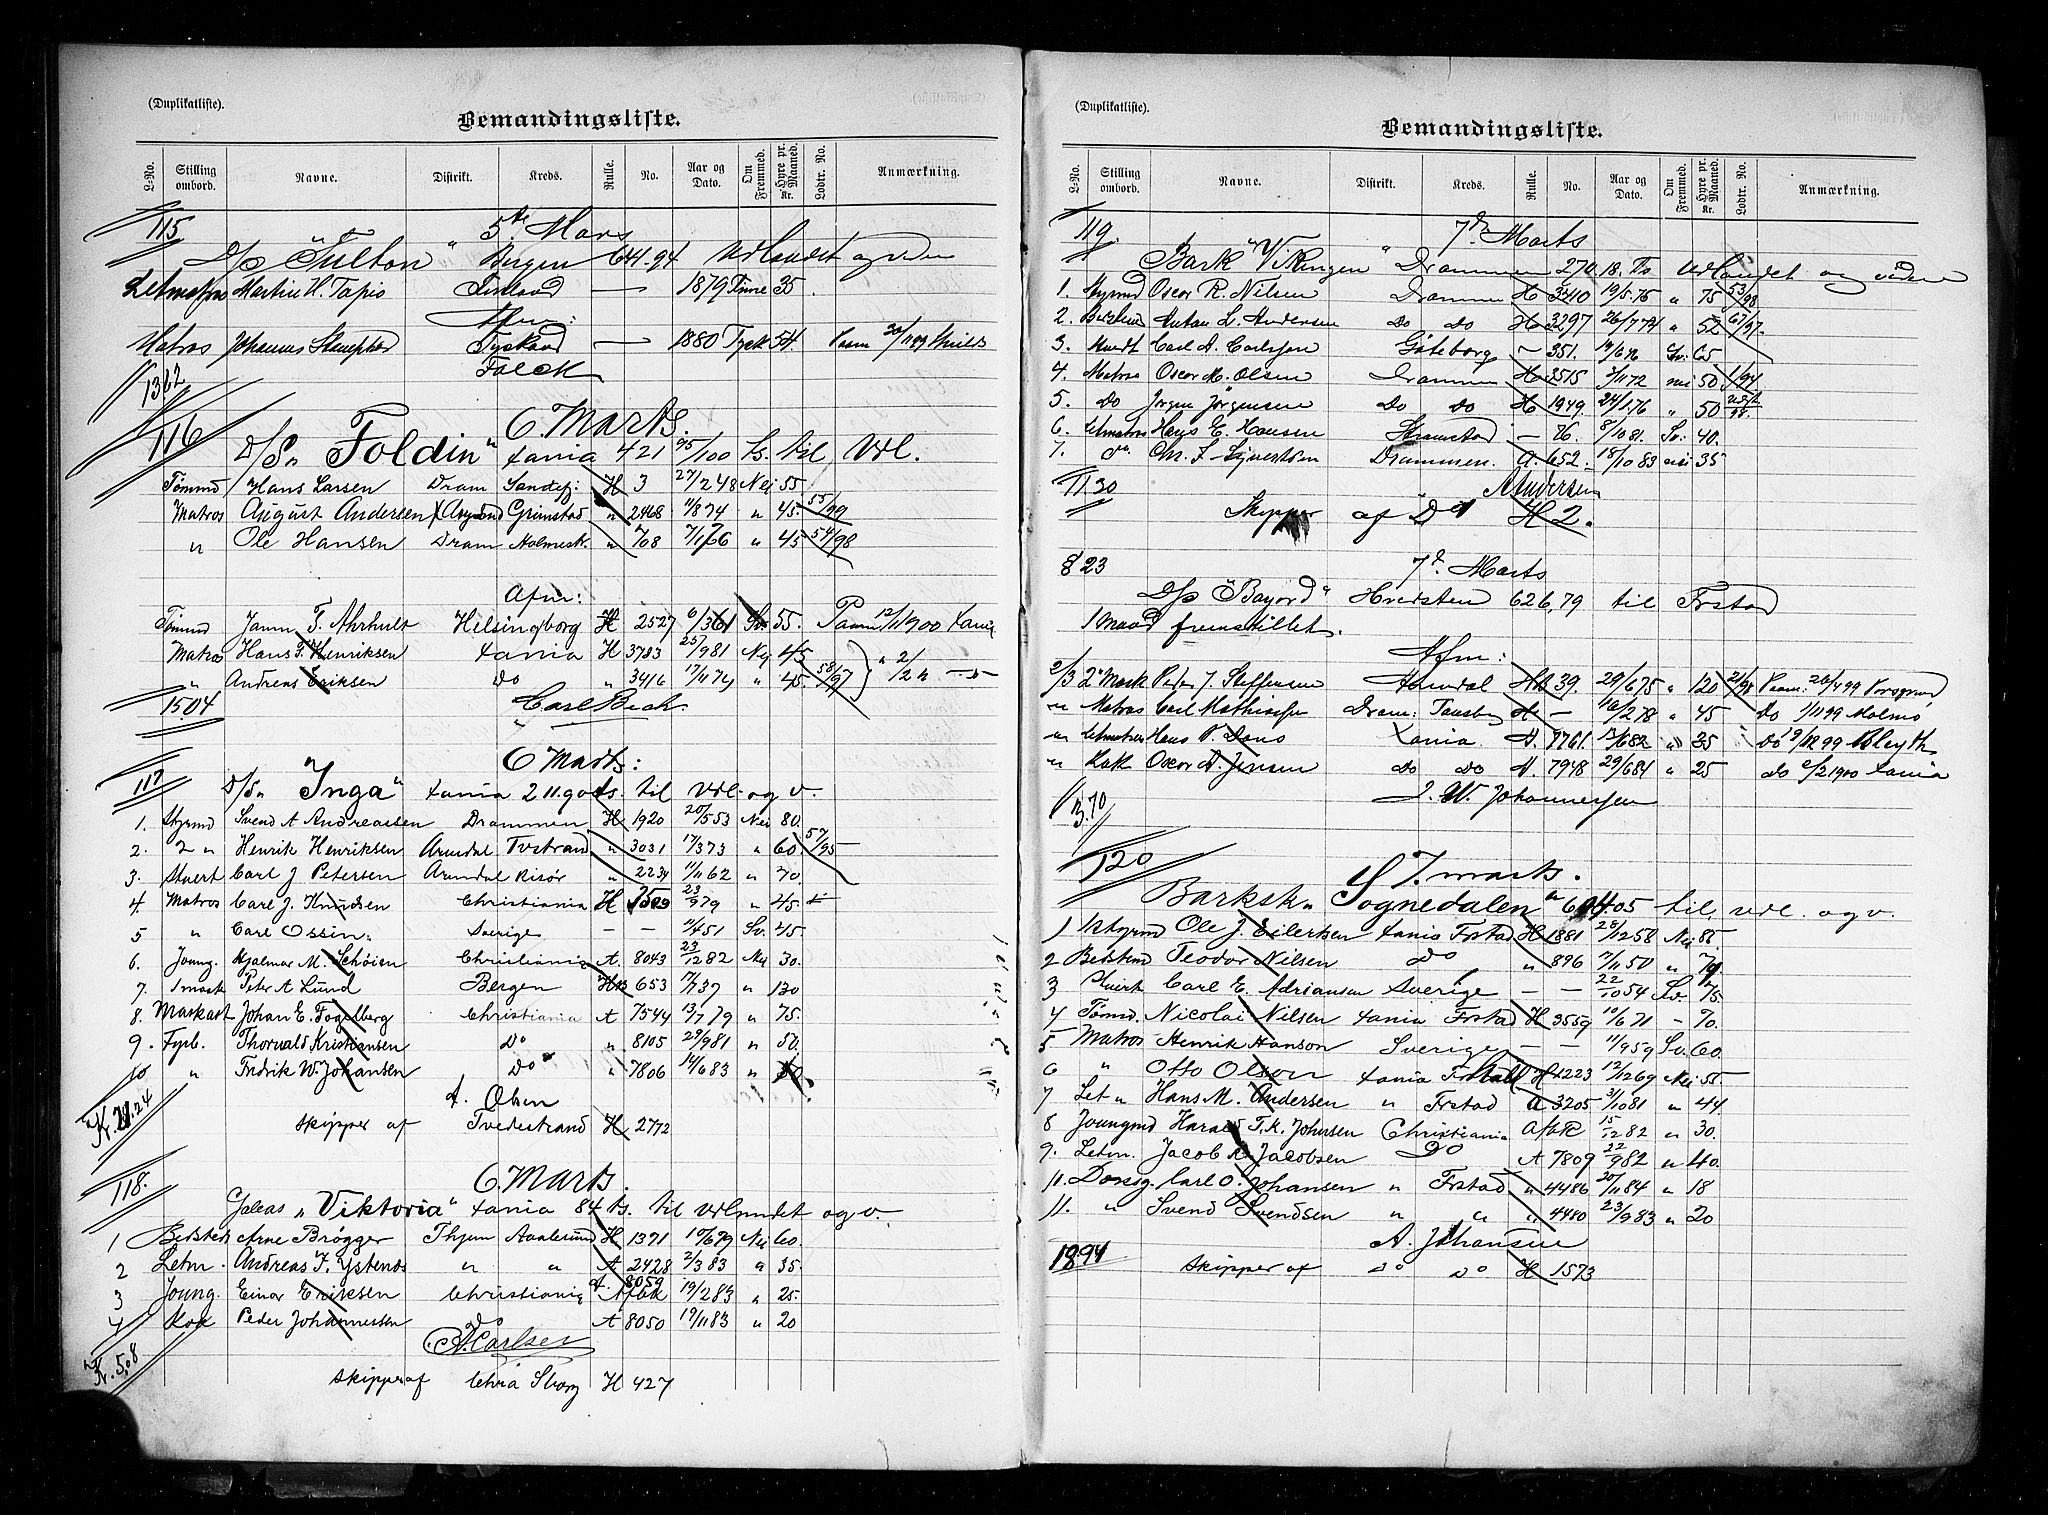 (Duplikatliste).
Bemandingsliste.
L-No. Stilling ombord. Navne. Distrikt. Kreds. Rulle. No. Aar og Dato. Om Fremmed. Hyre pr. Maaned. Kr. Lodtr. No. Anmærkning.
115 5te Mars
D/s "Fulton" Bergen 644.94 Udlandet og
Letmatros Martin H. Tapio Finland — 1879 Finne 35
Afm:
Matros Johannes Tyskland — 1880 Tysk 54.
Falck
1362
116 6 Marts.
D/S "Foldin" Xania 421 95/100 ts. til Udl.
Tømmd Hans Larsen Dram Sandefj: H 3 27/2 48 Nei 55
Matros August Andersen Grimstad " 2468 11/8 74 " 45. 55/99
" Ole Hansen Dram Holmest. " 708 7/1 66 " 45 54/98
Afm:
Tømmd T. Ahrhult Helsingborg H 2527 6/3 61 Sv. 55. Paam 12/1 1900 Xania
Matros Hans F. Henriksen Xania H 3783 25/9 81 Nej 45
" Andreas Eriksen Do " 3416 17/11 74 " 45. 58/97
1504 Carl Bech.
117 6 Marts:
D/S "Inga" Xania 211.90 ts. til Udl. og v.
1. Styrmd Svend A Andreassen Drammen H 1920 20/5 53 Nei 80.
2. 2 " Henrik Henriksen Arendal Tvstrand " 3031 17/3 73 " 60. 57/95
3. Stuert Carl J Petersen Arendal Risör " 2234 11/11 62 " 70.
4. Matros Carl J. Knudsen Christiania H 23/9 79 " 45.
5 " Carl Ossin. Sverige — — 11/4 51 Sv. 45
6. Joung. Hjalmar M. Schöien Christiania A. 8043 23/12 82 Nei 30.
7. 1 mask Peter A Lund Bergen HB 653 17/7 37 " 130
8. Maskast Johan E. Fogelberg Christiania A 7544 13/7 79 " 75.
9. Fyrb. Thorvald Kristiansen Do " 8105 29/9 81 " 50.
10 " Fredrik W. Johansen Do " 7806 14/6 83 " 50.
A. Olsen
Kr. 21.24 skipper af Tvedestrand H 2772
118. 6 Marts.
Galeas "Viktoria" Xania 84 ts. til Udlandet og v.
1 Bedstem Arne Brøgger Thjem Aalesund H 1371 10/6 79 Nei 60.
2 Letm. Andreas F. Ystenes " " A 2428 2/3 83 " 35.
3 Joung. Einar Eriksen Christiania A. 8059 19/2 83 " 25.
4 Kok Peder Johannessen Do A 8050 19/11 83 " 20
A. Carlsen
Kr. 5.08
skipper af Chria Sborg H 427
(Duplikatliste).
Bemandingsliste.
L-No. Stilling ombord. Navne. Distrikt. Kreds. Rulle. No. Aar og Dato. Om Fremmed. Hyre pr. Maaned. Kr. Lodtr. No. Anmærkning.
119. 7de Marts
Bark "Vikingen" Drammen 270.18. Ts Udlandet og videre
1. Styrmd Oscar R. Nilsen Drammen H 3540 19/5.75 " 75 53/98
2. Anton L. Andersen Do Do H 3297 26/7 74 " 52 67/97.
3. Carl A. Carlsson Göteborg — 351. Sv: 65
4. Matros Oscar M. Olsen Drammen H 3515 3/11 72 nei 50 1/94
5. Do Jørgen Jørgensen Do Do H 1949. 24/1.76 " 50
6. Letmatros Hans E. Hansen Strømstad — 76. 8/10 81. Sv: 40.
7. do. Chr. F. Syvertsen Drammen. A. 652. 18/10 83 nei 35
11.30 A Andersen
Skipper af Do H 2.
823 7de Marts
D/s "Bayard" Hvedsten 626,79 til Frstad
1 Mand fremstillet.
Afm:
2/3 2' Mask Peder J. Steffensen Arendal HB 39. 29/6 75 " 120 21/98 Paam: 26/4 99 Porsgrund
" Matros Carl Mathisen Dram: Tønsberg H — 16/2 78 " 45 Do 1/11 99 Malmö
" Letmatros Hans P. Xania A. 8761. 13/6 82 " 35 Do 19/12 99 Blyth
" Kok Oscar A. Jensen Do Do A. 7948 29/6 84 " 25 Do 2/2 1900 Xania
J. W. Johannessen
3.70
120 7. marts.
Barksk. "Sognedalen" 604.05 til udl. og v.
1 1 Styrmd Ole J. Eilertsen Xania Frstad H 1881 28/12 58 Nei 85
2 Bedstmd Teodor Nilsen Do " 896 17/11 50 " 79
3 Stuert Carl E. Adriansen Sverige — — 22/10 54 Sv. 75.
4 Tømmd. Nicolai Nilsen Xania Frstad H 3559 10/6 71 — 70.
5 Matros Henrik Hanson Sverige — — 11/9 59 Sv. 60.
6 " Otto Olsen Xania Frstad H 1223 12/12 69 Nei 55.
7 Let " Hans M. Andersen " Frstad A 3205 31/10 81 " 44
8 Joungmd Harald T. K. Johnsen Christiania 15/12 82 " 30.
9. Letm. Jacob A. Jacobsen Do A 7809 22/9 82 " 40.
10. Dæksg. Carl O. Johansen " Frstad " 4486 20/11 84 " 18
11. " Svend Svendsen " " " 4480 23/9 83 " 20
A. Johansen
18.94 skipper af Do Do H 1573